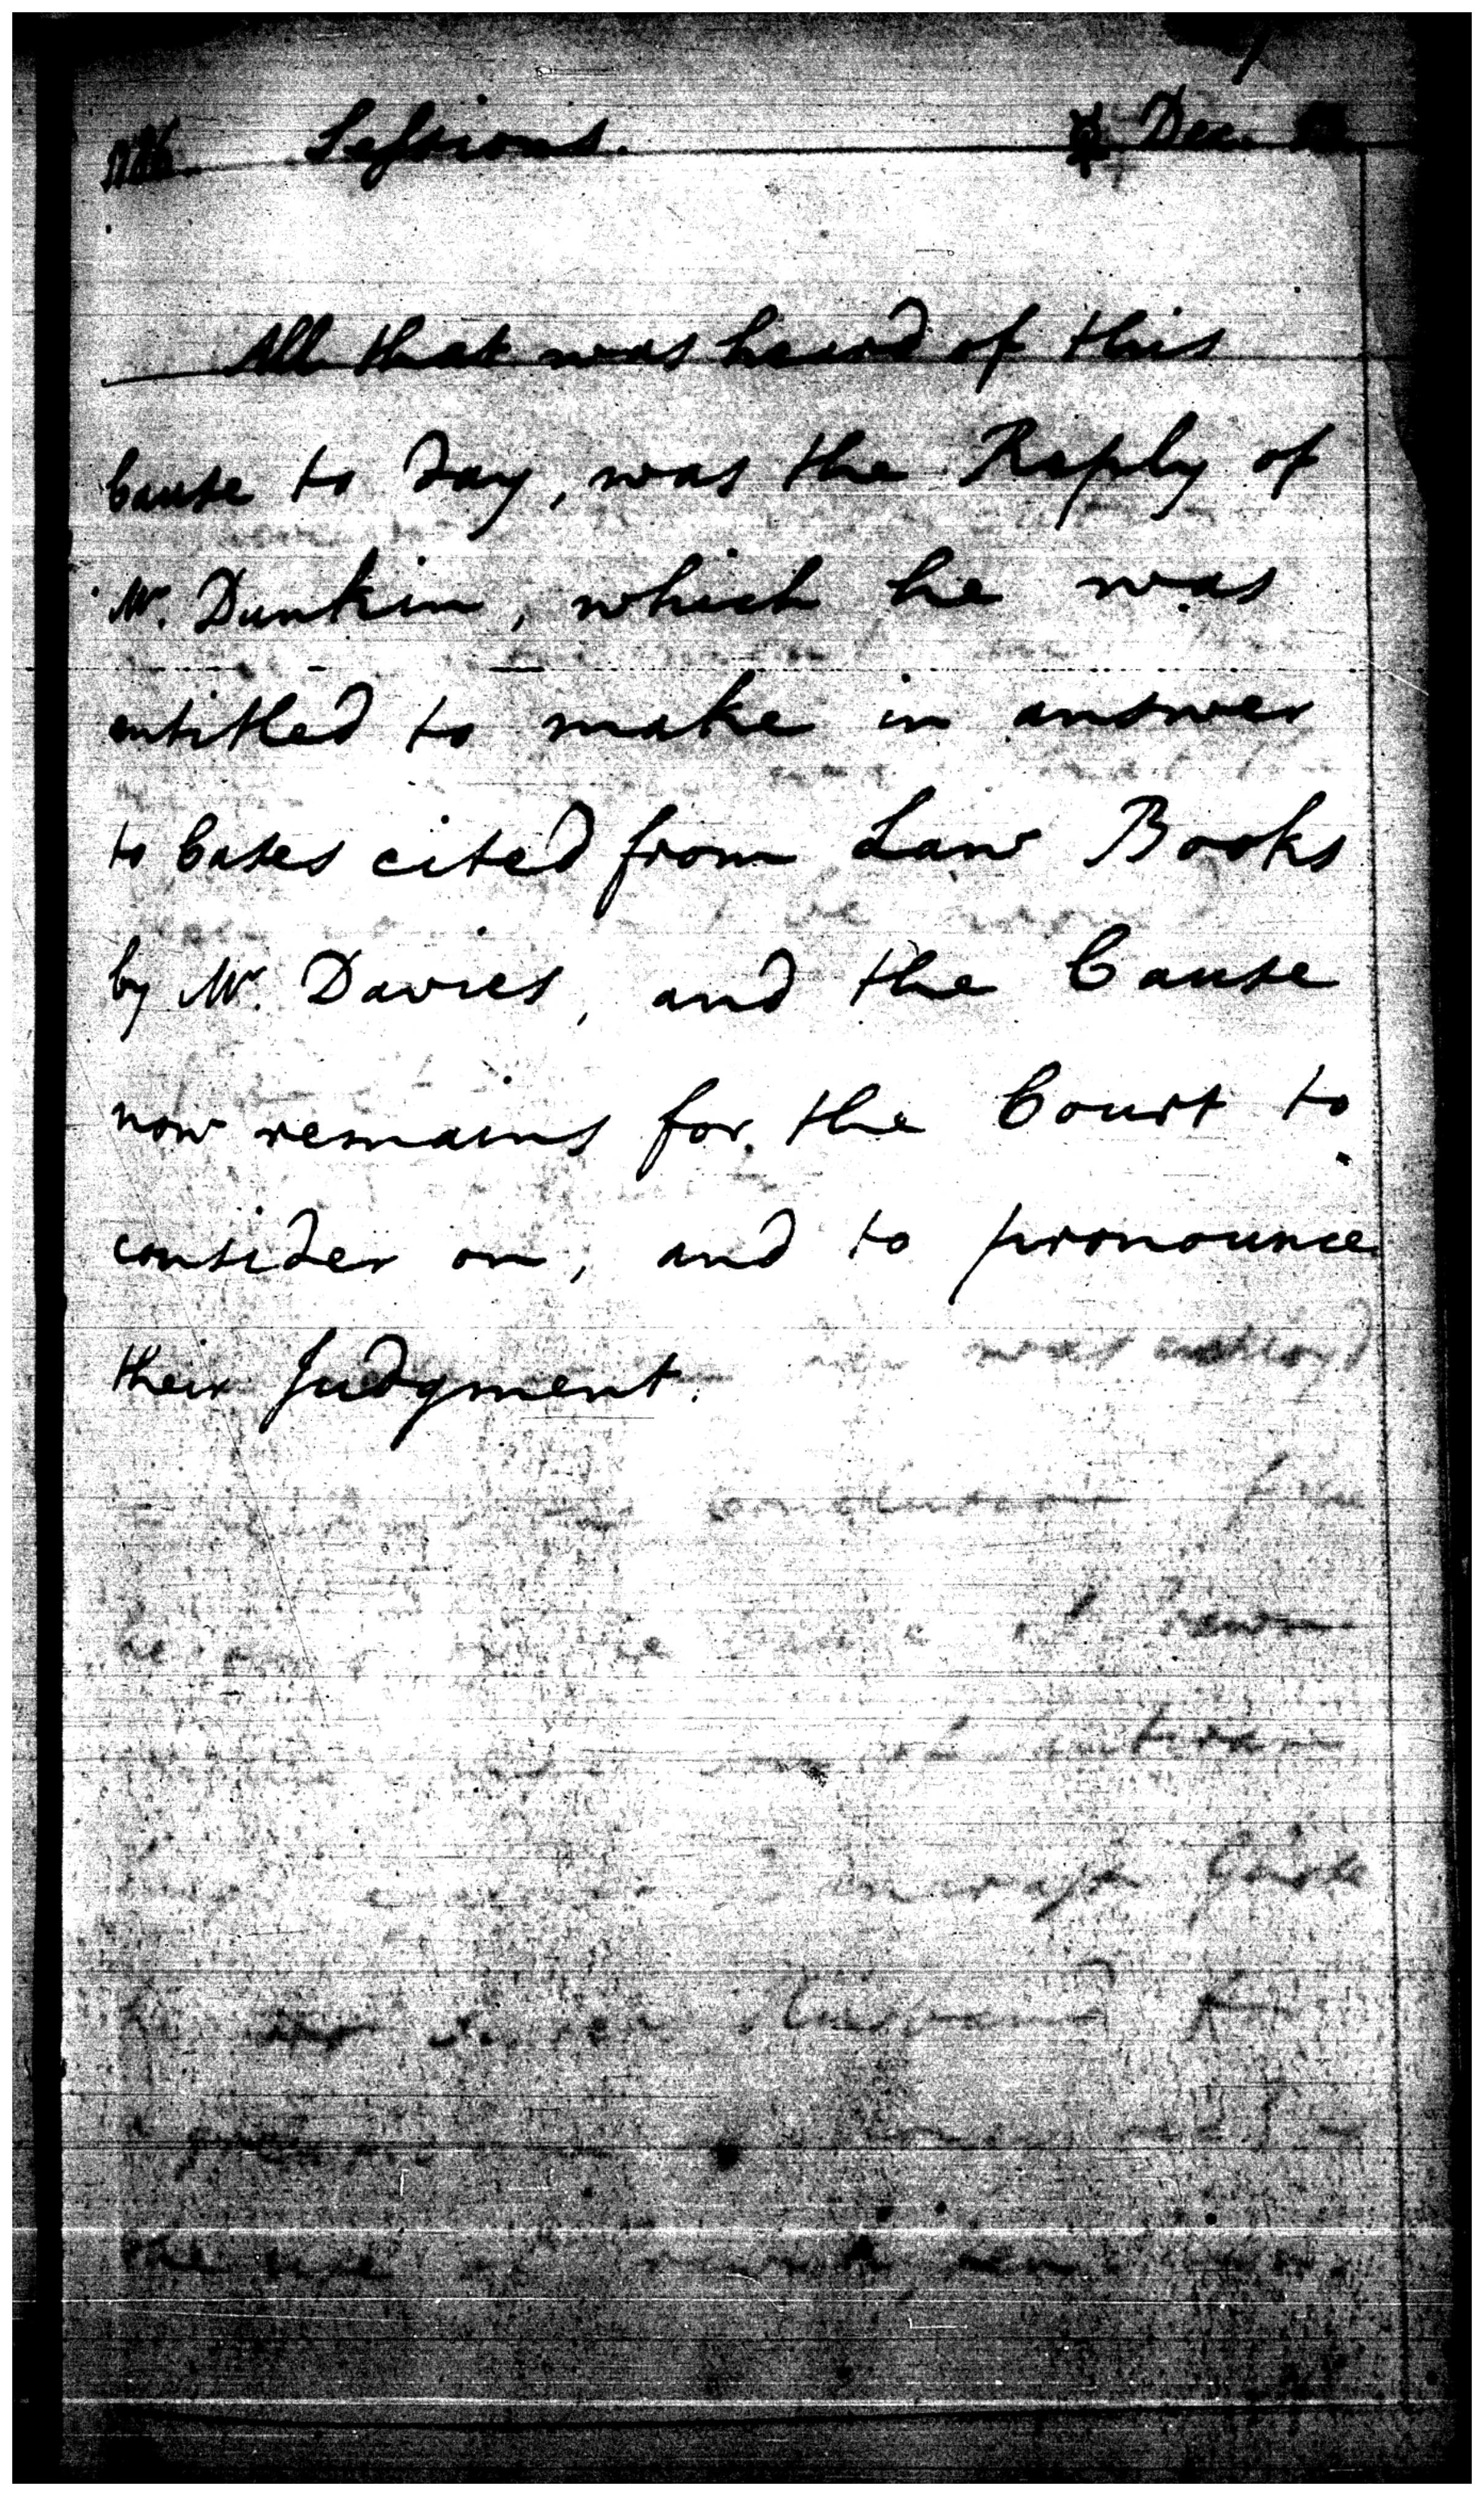 Sessions. Dec.
All that was heard of this
Cause to day, was the Reply of
Mr. Dunkin, which he was
entitled to make in answer
to Cases cited from Law Books
by Mr. Davies, and the Cause
now remains for the Court to
consider on, and to pronounce
their Judgment.